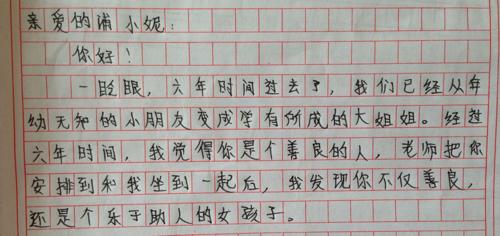 亲爱的浦小妮：
你好！
一眨眼，六年时间过去了，我们已经从年
幼无知的小朋友变成学有所成的大姐姐。经过
六年时间，我觉得你是个善良的人，老师把你
安排到和我坐到一起后，我发现你不仅善良，
还是个乐于助人的女孩子。